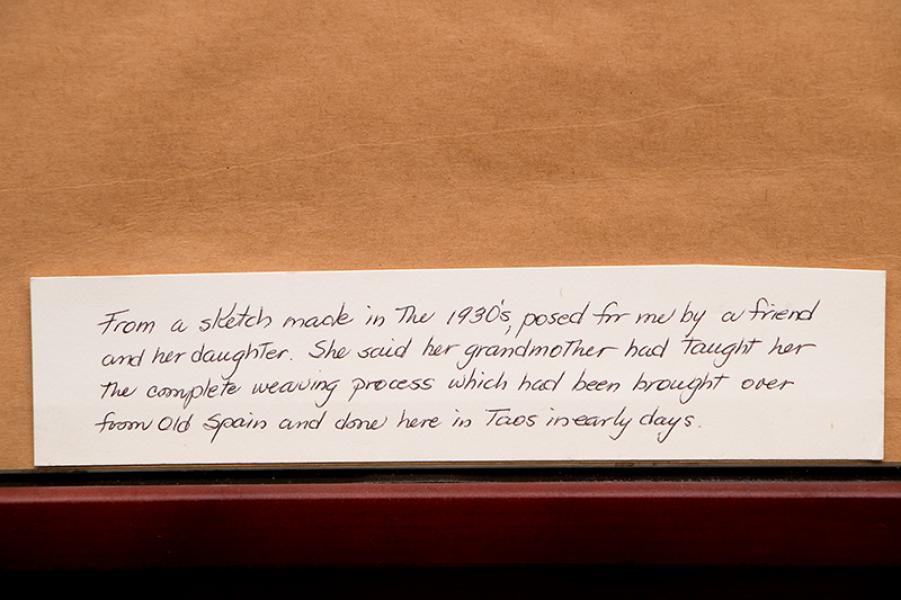 From a sketch made in The 1930's, posed for me by a friend
and her daughter. She said her grandmother had taught her
the complete weaving process which had been brought over
from Old Spain and done here in Taos in early days.